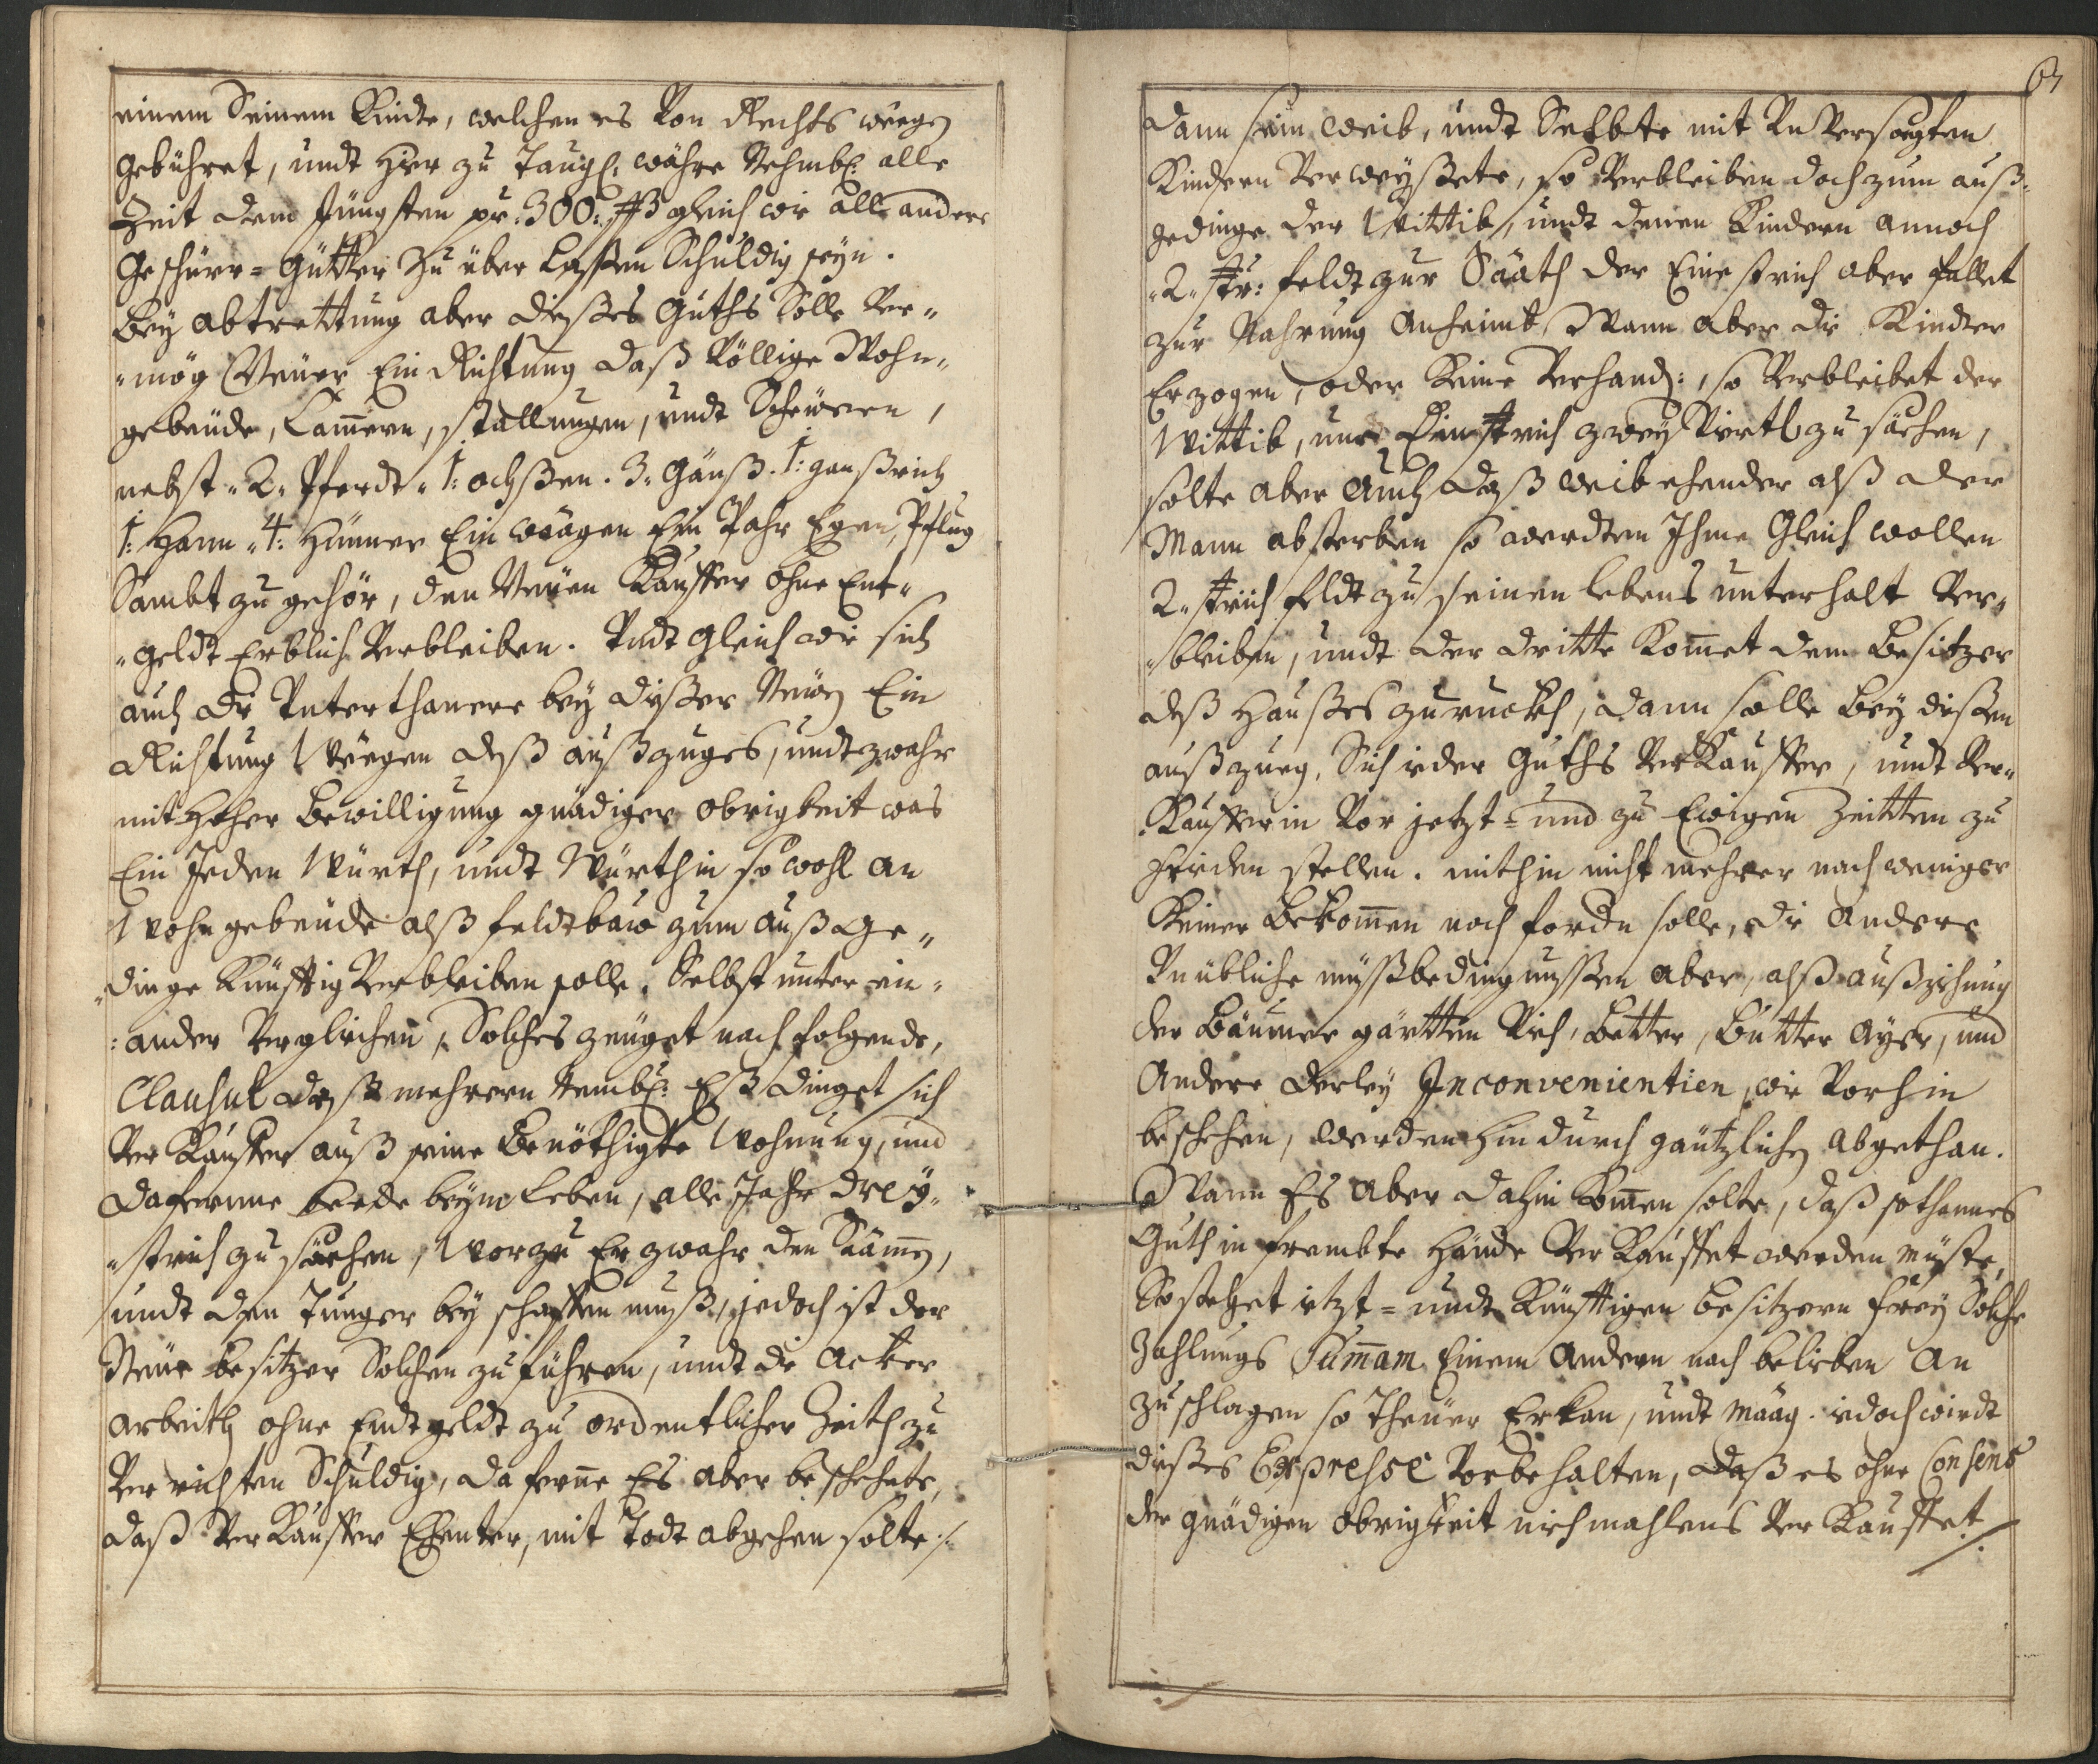 einem Seinem Kinde, welchen es Von Rechts weegen
gebühret, undt hier zu Taugl: währe Nehmbl: alle
Zeit dem Jüngsten pr: 300: ßß gleich wie all andere
Geschürr= Gütter zu über Laßen Schuldig seyn.
Bey abtrettung aber dießes Guths solle Ver„
„mög Neüer Ein Richtung daß Völlige Wohn„
gebeüde, Cam̄ern, stallungen, undt Scheüeren,
nebst „2„ Pferdt „1: ochßen. 3„ Gänß. 1: ganßrich
1: Hann „4: Hünner Ein waagen Ein Pahr Egen, Pflug
Sambt zu gehör, den Neüen Kauffer ohne Ent„
„geldt Erblich Verbleiben. Undt gleich wie sich
auch die Unterthanere bey dießer Neüen Ein
Richtung Weegen deß außzuges, undt zwahr
mit Hoher Bewilligung gnädiger obrigkeit was
Ein Jeden Würth, undt Würthin so wohl an
Wohn gebeüde alß feldtbaw zum Auß Ge„
„dinge Künfftig Verbleiben solle, Selbst unter ein„
:ander Verglichen, Solches zeüget nach folgende,
Clausul deß mehrern Nembl: Eß dinget sich
Ver Kauffer auß seine Benöthigte Wohnung, und
daferrne beede beym Leben, alle Jahr drey„
„strich zu säehen, Worzu Er zwahr den Saamen,
undt den Tunger bey schaffen muß, jedoch ist der
Neüe besitzer Solchen zu führen, undt die Acker
Arbeith ohne Endt geldt zu ordentlicher Zeith zu
Ver richten Schuldig, da ferne Es aber beschehete,
daß Ver Kauffer Ehenter, mit Todt abgehen solte:/:
67
dann sein Weib, undt Selbte mit Un Versorgten
Kindern Verweyßete, so Verbleiben doch zum auß„
gedinge der Wittib, undt denen Kindern annoch
„2„ str: feldt zur Sääth der Eine strich aber fallet
zur Nahrung Anheimb Wann aber die Kinder
Erzogen, oder Keine Verhandt:, so Verbleibet der
Wittib, nur Ein strich zwey Viertl zu säehen,
solte aber Auch daß Weib ehender alß der
Mann absterben so werdten Ihme Gleich wollen
2„ strich feldt zu seinen lebens unterhalt Ver„
„bleiben, undt der dritte Kom̄et dem Besitzer
deß Haußes zuruckh, dann solle Bey dießen
außzueg, Sich ieder Guths Ver Kauffer, undt Ver„
„Kaufferin Vor jetzt= und zu Ewigen Zeitten zu
frieden stellen. mithin nicht mehrer noch weniger
Keiner Bekom̄en noch fordn solle, die Andere
Unübliche müßbedingnussen aber, alß außziehung
der Bäumer gärtten Vieh, Better, Butter Ayer, und
Andere derley Inconvenientien, wie Vorhin
beschehen, werden hindurch gäntzlichen abgethan.
Wann Es aber dahin Kom̄en solte, daß sothannes
Guth in frembte Hände Ver Kauffet werden müste,
So stehet ietzt= undt Künfftigen besitzern frey Solche
Zahlungs Sum̄am Einem Andern nach belieben An
zu schlagen so Theüer Erkan, undt maag. iedoch wirdt
dießes Expresse Vorbehalten, daß es ohne Consens
der gnädigen obrigkeit niehmahlens Ver Kauffet